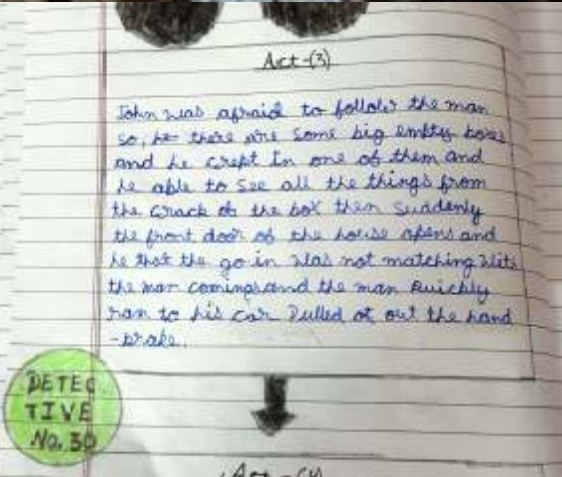 Act-(3)
John was afraid to follow the man
so, he there are some big empty boxes
and he crept in one of them and
he able to see all the things from
the crack of the box then suddenly
the front door of the house opens and
he that the go in was not matching with
the man comings and the man quickly
ran to his car Pulled ot out the hand
-brake.
DETEC
TIVE
No. 30
Act-(4)